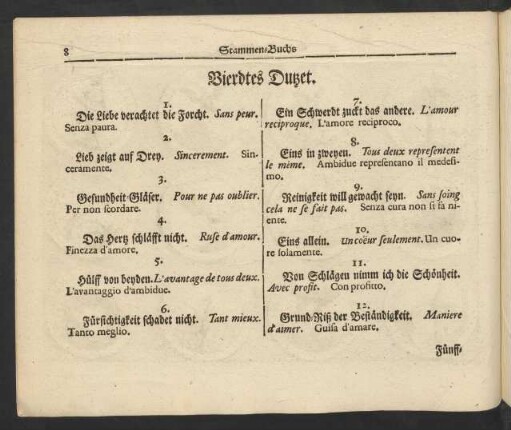 8
Stammen-Buchs
Vierdtes Dutzet.
1.
Die Liebe verachtet die Forcht. Sans peur.
Senza paura.
2.
Lieb zeigt auf Drey. Sincerement. Sin-
ceramente.
3.
Gesundheit-Gläser. Pour ne pas oublier.
Per non scordare.
4.
Das Hertz schläfft nicht. Ruse d'amour.
Finezza d'amore.
5.
Hülff von beyden. L'avantage de tous deux.
L'avantaggio d'ambidue.
6.
Fürsichtigkeit schadet nicht. Tant mieux.
Tanto meglio.
7.
Ein Schwerdt zuckt das andere. L'amour
reciproque. L'amore reciproco.
8.
Eins in zweyen. Tous deux representent
le mème. Ambidue representano il medesi-
mo.
9.
Reinigkeit will gewacht seyn. Sans soing
cela ne se fait pas. Senza cura non si fa ni-
ente.
10.
Eins allein. Un coëur seulement. Un cuo-
re solamente.
11.
Von Schlägen nimm ich die Schönheit.
Avec profit. Con profitto.
12.
Grund-Riß der Beständigkeit. Maniere
d'aimer. Guisa d'amare.
Fünff-